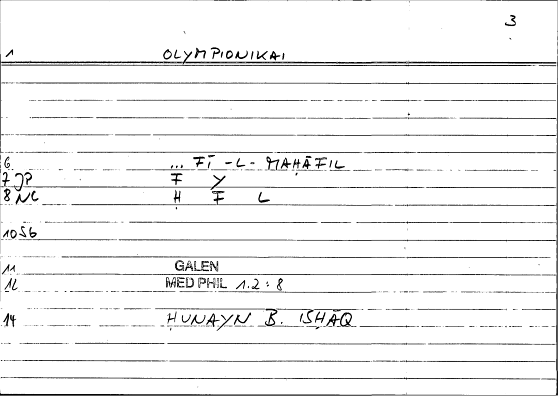 3
1 OLYMPIONIKAI
6 ... FĪ -L- MAḤĀFIL
7 JP F Y
8 NC Ḥ F L
10 S6
11 GALEN
12 MED PHIL 1.2 : 8
14 ḤUNAYN B. ISḤĀQ